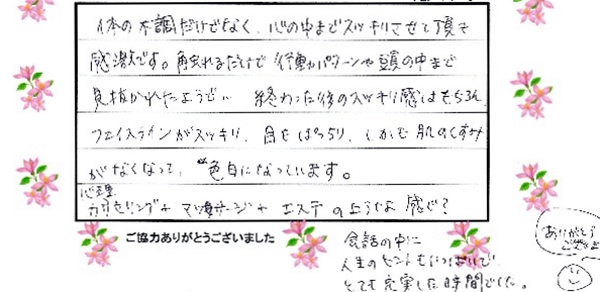 体の不調だけでなく、心の中までスッキリさせて頂き
感激です。触れるだけで行動パターンや頭の中まで
見抜かれたようで… 終わった後のスッキリ感はもちろん
フェイスラインがスッキリ、目もぱっちり、しかも肌のくすみ
がなくなって、"色白になっています。
心理
カウンセリング + マッサージ + エステのような感じ?
ご協力ありがとうございました
会話の中に
人生のヒントもいっぱいで
とても充実した時間でした。
ありがとう